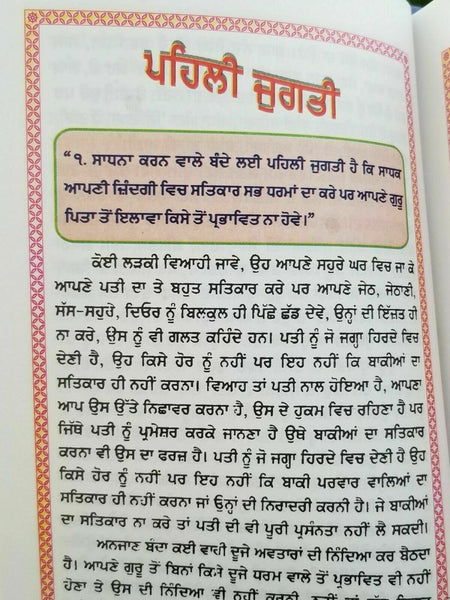 ਪਹਿਲੀ ਜੁਗਤੀ
“੧. ਸਾਧਨਾ ਕਰਨ ਵਾਲੇ ਬੰਦੇ ਲਈ ਪਹਿਲੀ ਜੁਗਤੀ ਹੈ ਕਿ ਸਾਧਕ
ਆਪਣੀ ਜ਼ਿੰਦਗੀ ਵਿਚ ਸਤਿਕਾਰ ਸਭ ਧਰਮਾਂ ਦਾ ਕਰੇ ਪਰ ਆਪਣੇ ਗੁਰੂ
ਪਿਤਾ ਤੋਂ ਇਲਾਵਾ ਕਿਸੇ ਤੋਂ ਪ੍ਰਭਾਵਿਤ ਨਾ ਹੋਵੇ।”
ਕੋਈ ਲੜਕੀ ਵਿਆਹੀ ਜਾਵੇ, ਉਹ ਆਪਣੇ ਸਹੁਰੇ ਘਰ ਵਿਚ ਜਾ ਕੇ
ਆਪਣੇ ਪਤੀ ਦਾ ਤੇ ਬਹੁਤ ਸਤਿਕਾਰ ਕਰੇ ਪਰ ਆਪਣੇ ਜੇਠ, ਜੇਠਾਣੀ,
ਸੱਸ-ਸਹੁਰੇ, ਦਿਓਰ ਨੂੰ ਬਿਲਕੁਲ ਹੀ ਪਿੱਛੇ ਛੱਡ ਦੇਵੇ, ਉਨ੍ਹਾਂ ਦੀ ਇੱਜ਼ਤ ਹੀ
ਨਾ ਕਰੇ, ਉਸ ਨੂੰ ਵੀ ਗਲਤ ਕਹਿੰਦੇ ਹਨ। ਪਤੀ ਨੂੰ ਜੋ ਜਗ੍ਹਾ ਹਿਰਦੇ ਵਿਚ
ਦੇਣੀ ਹੈ, ਉਹ ਕਿਸੇ ਹੋਰ ਨੂੰ ਨਹੀਂ ਪਰ ਇਹ ਨਹੀਂ ਕਿ ਬਾਕੀਆਂ ਦਾ
ਸਤਿਕਾਰ ਹੀ ਨਹੀਂ ਕਰਨਾ। ਵਿਆਹ ਤਾਂ ਪਤੀ ਨਾਲ ਹੋਇਆ ਹੈ, ਆਪਣਾ
ਆਪ ਉਸ ਉੱਤੇ ਨਿਛਾਵਰ ਕਰਨਾ ਹੈ, ਉਸ ਦੇ ਹੁਕਮ ਵਿਚ ਰਹਿਣਾ ਹੈ ਪਰ
ਜਿੱਥੇ ਪਤੀ ਨੂੰ ਪ੍ਰਮੇਸ਼ਰ ਕਰਕੇ ਜਾਨਣਾ ਹੈ ਉਥੇ ਬਾਕੀਆਂ ਦਾ ਸਤਿਕਾਰ
ਕਰਨਾ ਵੀ ਉਸ ਦਾ ਫਰਜ਼ ਹੈ। ਪਤੀ ਨੂੰ ਜੋ ਜਗ੍ਹਾ ਹਿਰਦੇ ਵਿਚ ਦੇਣੀ ਹੈ ਉਹ
ਕਿਸੇ ਹੋਰ ਨੂੰ ਨਹੀਂ ਪਰ ਇਹ ਨਹੀਂ ਕਿ ਬਾਕੀ ਪਰਵਾਰ ਵਾਲਿਆਂ ਦਾ
ਸਤਿਕਾਰ ਹੀ ਨਹੀਂ ਕਰਨਾ ਜਾਂ ਉਨ੍ਹਾਂ ਦੀ ਨਿਰਾਦਰੀ ਕਰਨੀ ਹੈ। ਜੇ ਬਾਕੀਆਂ
ਦਾ ਸਤਿਕਾਰ ਨਾ ਕਰੇ ਤਾਂ ਪਤੀ ਦੀ ਵੀ ਪੂਰੀ ਪ੍ਰਸੰਨਤਾ ਨਹੀਂ ਲੈ ਸਕਦੀ।
ਅਨਜਾਣ ਬੰਦਾ ਕਈ ਵਾਰੀ ਦੂਜੇ ਅਵਤਾਰਾਂ ਦੀ ਨਿੰਦਿਆ ਕਰ ਬੈਠਦਾ
ਹੈ। ਆਪਣੇ ਗੁਰੂ ਤੋਂ ਬਿਨਾਂ ਕਿਸੇ ਦੂਜੇ ਧਰਮ ਵਾਲੇ ਤੋਂ ਪ੍ਰਭਾਵਿਤ ਵੀ ਨਹੀਂ
ਹੋਣਾ ਤੇ ਉਸ ਦੀ ਨਿੰਦਿਆ ਵੀ ਨਹੀਂ